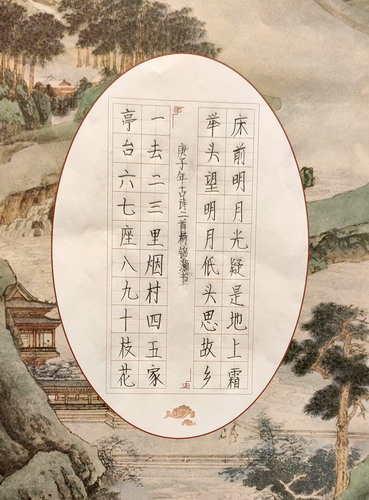 床前明月光疑是地上霜
举头望明月低头思故乡
庚子年古诗二首
一去二三里烟村四五家
亭台六七座八九十枝花